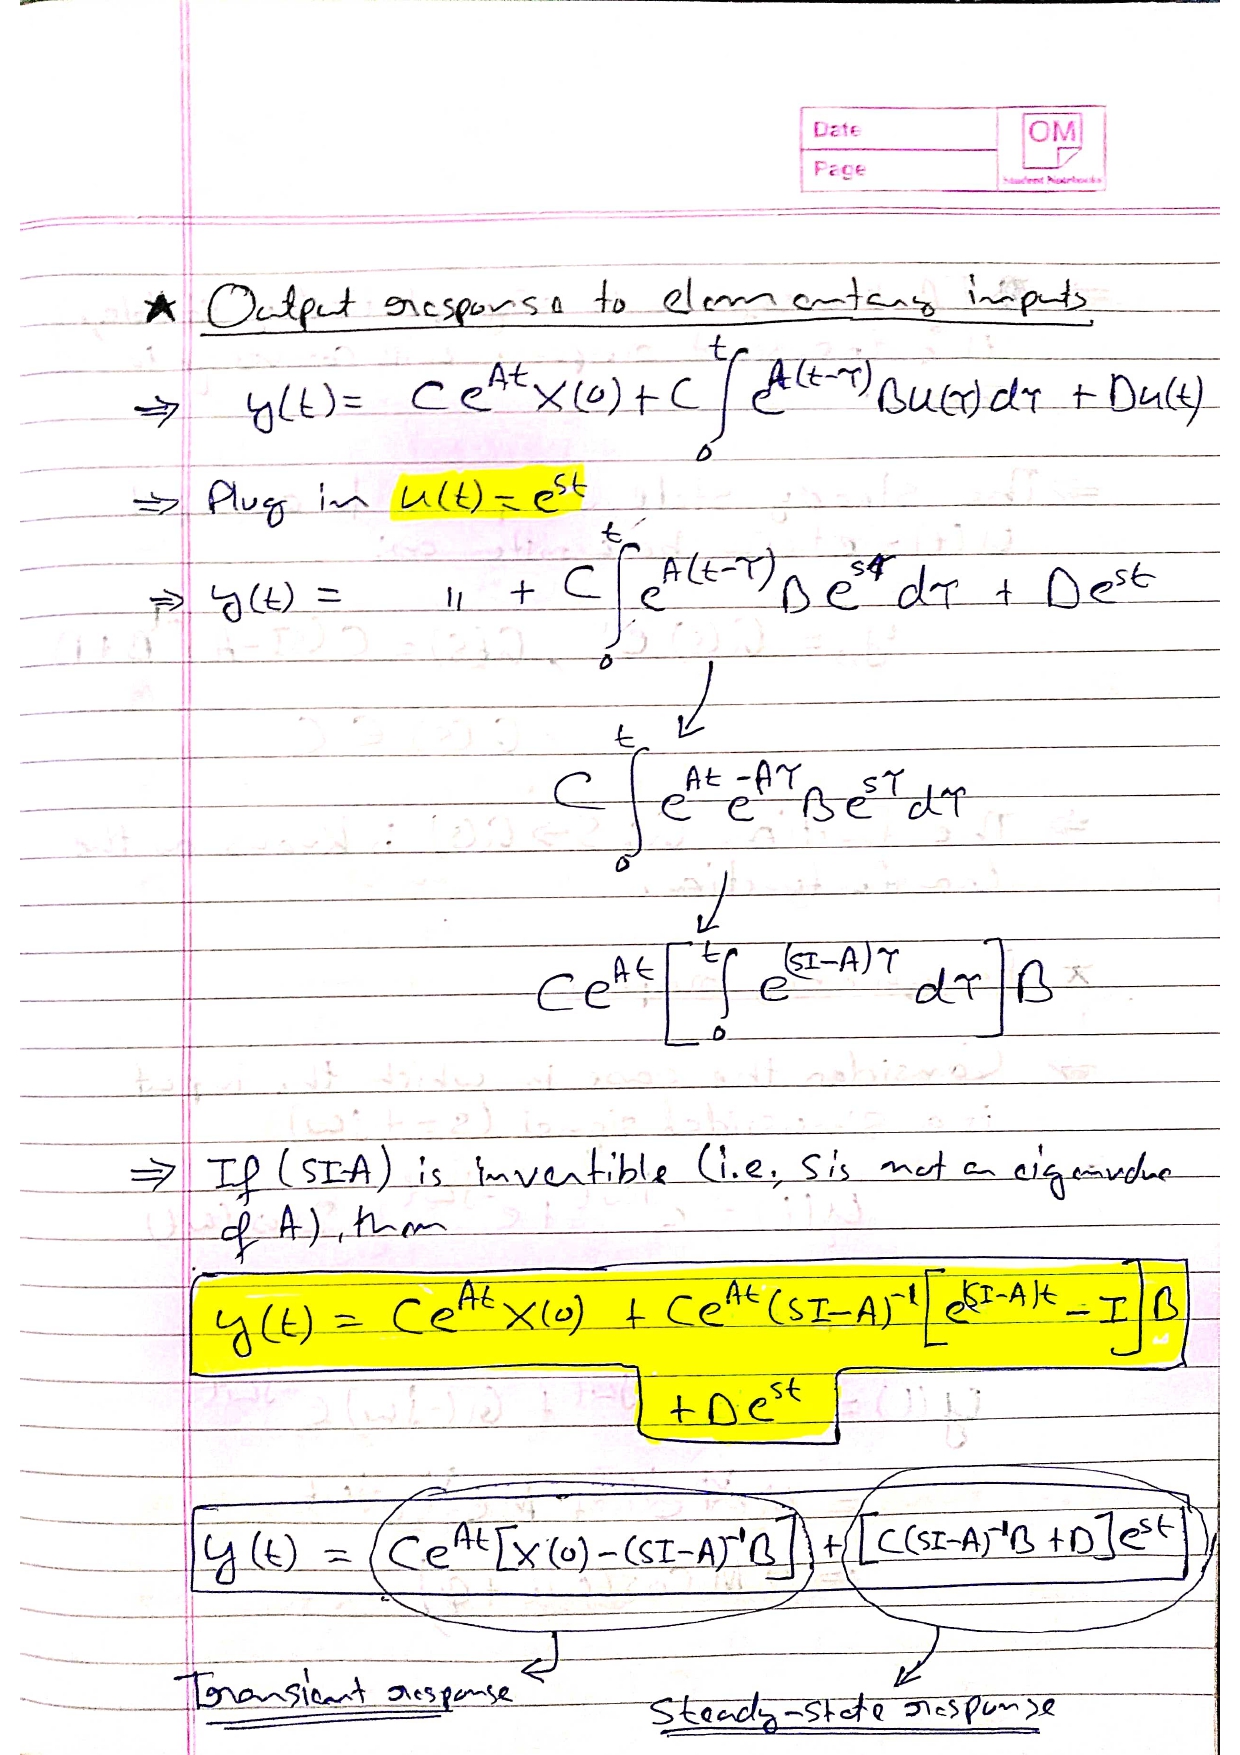 Date
OM
Page
Student Notebooks
★ Output response to elementary inputs
⇒ y(t) = C e^{At} X(0) + C ∫_0^t e^{A(t-τ)} B u(τ) dτ + D u(t)
⇒ Plug in u(t) = e^{st}
⇒ y(t) = 〃 + C ∫_0^t e^{A(t-τ)} B e^{sτ} dτ + D e^{st}
C ∫_0^t e^{At} e^{-Aτ} B e^{sτ} dτ
C e^{At} [ ∫_0^t e^{(SI-A)τ} dτ ] B
⇒ If (SI-A) is invertible (i.e, S is not an eigenvalue
of A), then
y(t) = C e^{At} X(0) + C e^{At} (SI-A)^{-1} [ e^{(SI-A)t} - I ] B
+ D e^{st}
y(t) = C e^{At} [X(0) - (SI-A)^{-1} B] + [C(SI-A)^{-1} B + D] e^{st}
Transient response
Steady-state response